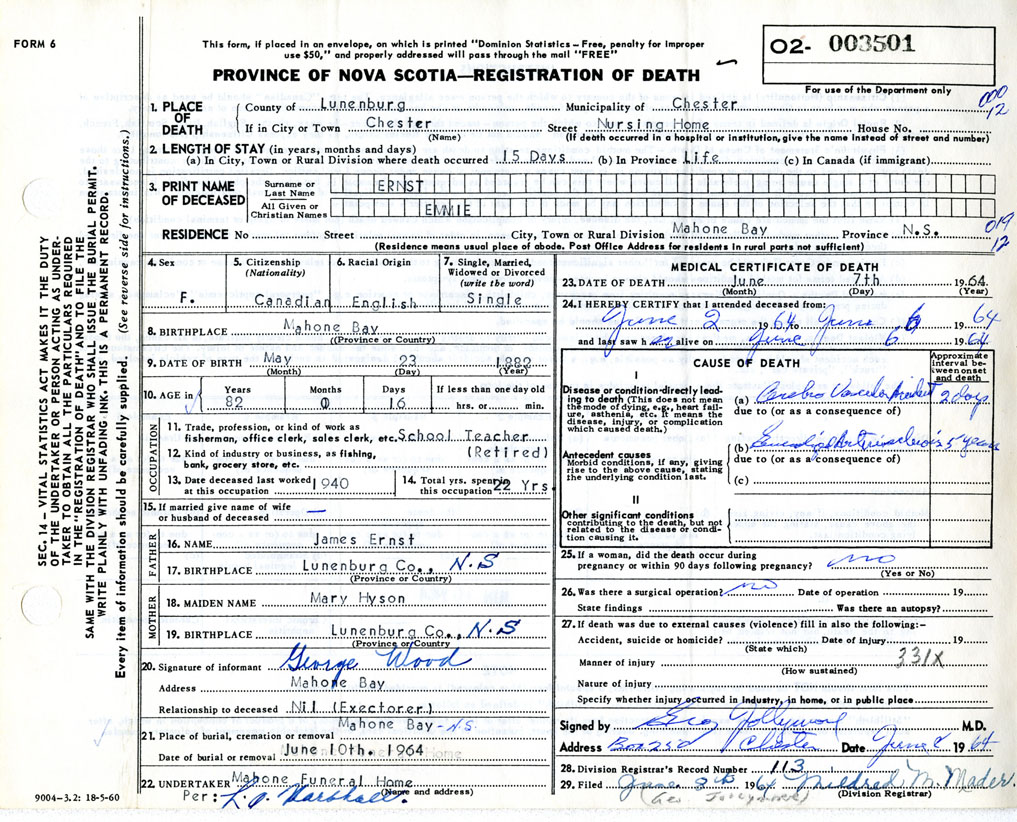 FORM 6
This form, if placed in an envelope, on which is printed "Dominion Statistics – Free, penalty for improper
use $50," and properly addressed will pass through the mail "FREE"
PROVINCE OF NOVA SCOTIA—REGISTRATION OF DEATH
O2- 003501
For use of the Department only
SEC. 14 – VITAL STATISTICS ACT MAKES IT THE DUTY
OF THE UNDERTAKER OR PERSON ACTING AS UNDER-
TAKER TO OBTAIN ALL THE PARTICULARS REQUIRED
IN THE "REGISTRATION OF DEATH" AND TO FILE THE
SAME WITH THE DIVISION REGISTRAR WHO SHALL ISSUE THE BURIAL PERMIT.
WRITE PLAINLY WITH UNFADING INK. THIS IS A PERMANENT RECORD.
Every item of information should be carefully supplied. (See reverse side for instructions.)
1. PLACE OF DEATH
County of Lunenburg Municipality of Chester
000
12
If in City or Town Chester Street Nursing Home House No.
(Name) (If death occurred in a hospital or institution, give the name instead of street and number)
2. LENGTH OF STAY (in years, months and days)
(a) In City, Town or Rural Division where death occurred 15 Days (b) In Province Life (c) In Canada (if immigrant)
3. PRINT NAME OF DECEASED
Surname or Last Name ERNST
All Given or Christian Names EMMIE
RESIDENCE No Street City, Town or Rural Division Mahone Bay Province N.S.
019
12
(Residence means usual place of abode. Post Office Address for residents in rural parts not sufficient)
4. Sex F.
5. Citizenship (Nationality) Canadian
6. Racial Origin English
7. Single, Married, Widowed or Divorced (write the word) Single
8. BIRTHPLACE Mahone Bay
(Province or Country)
9. DATE OF BIRTH May 23 1882
(Month) (Day) (Year)
10. AGE in Years 82 Months 0 Days 16 If less than one day old hrs. or min.
OCCUPATION
11. Trade, profession, or kind of work as
fisherman, office clerk, sales clerk, etc. School Teacher
12. Kind of industry or business, as fishing, (Retired)
bank, grocery store, etc.
13. Date deceased last worked at this occupation 1940
14. Total yrs. spent in this occupation 22 Yrs.
15. If married give name of wife
or husband of deceased —
FATHER
16. NAME James Ernst
17. BIRTHPLACE Lunenburg Co., N.S
(Province or Country)
MOTHER
18. MAIDEN NAME Mary Hyson
19. BIRTHPLACE Lunenburg Co., N.S
(Province or Country)
20. Signature of informant George Wood
Address Mahone Bay
Relationship to deceased Nil (Exectorer)
Mahone Bay - N.S.
21. Place of burial, cremation or removal
Date of burial or removal June 10th. 1964
22. UNDERTAKER Mahone Funeral Home
(Name and address)
Per: Marshall.
9004-3.2: 18-5-60
MEDICAL CERTIFICATE OF DEATH
23. DATE OF DEATH June 7th 1964
(Month) (Day) (Year)
24. I HEREBY CERTIFY that I attended deceased from:
June 2 1964 to June 6 1964
and last saw h er alive on June 6 1964
CAUSE OF DEATH
Approximate interval between onset and death
I
Disease or condition directly lead-
ing to death (This does not mean
the mode of dying, e.g., heart fail-
ure, asthenia, etc. It means the
disease, injury, or complication
which caused death.)
(a) Cerebro Vascular Accident 2 days
due to (or as a consequence of)
Antecedent causes
Morbid conditions, if any, giving
rise to the above cause, stating
the underlying condition last.
(b) Arteriosclerosis 5 years
due to (or as a consequence of)
(c)
II
Other significant conditions
contributing to the death, but not
related to the disease or condi-
tion causing it.
25. If a woman, did the death occur during
pregnancy or within 90 days following pregnancy? no
(Yes or No)
26. Was there a surgical operation? no Date of operation 19
State findings Was there an autopsy?
27. If death was due to external causes (violence) fill in also the following:–
Accident, suicide or homicide? Date of injury 19
(State which)
331X
Manner of injury
(How sustained)
Nature of injury
Specify whether injury occurred in industry, in home, or in public place
Signed by M.D.
Address Box 250 Chester Date June 8 1964
28. Division Registrar's Record Number 113
29. Filed June 1964 Mildred M. Mader.
(Division Registrar)